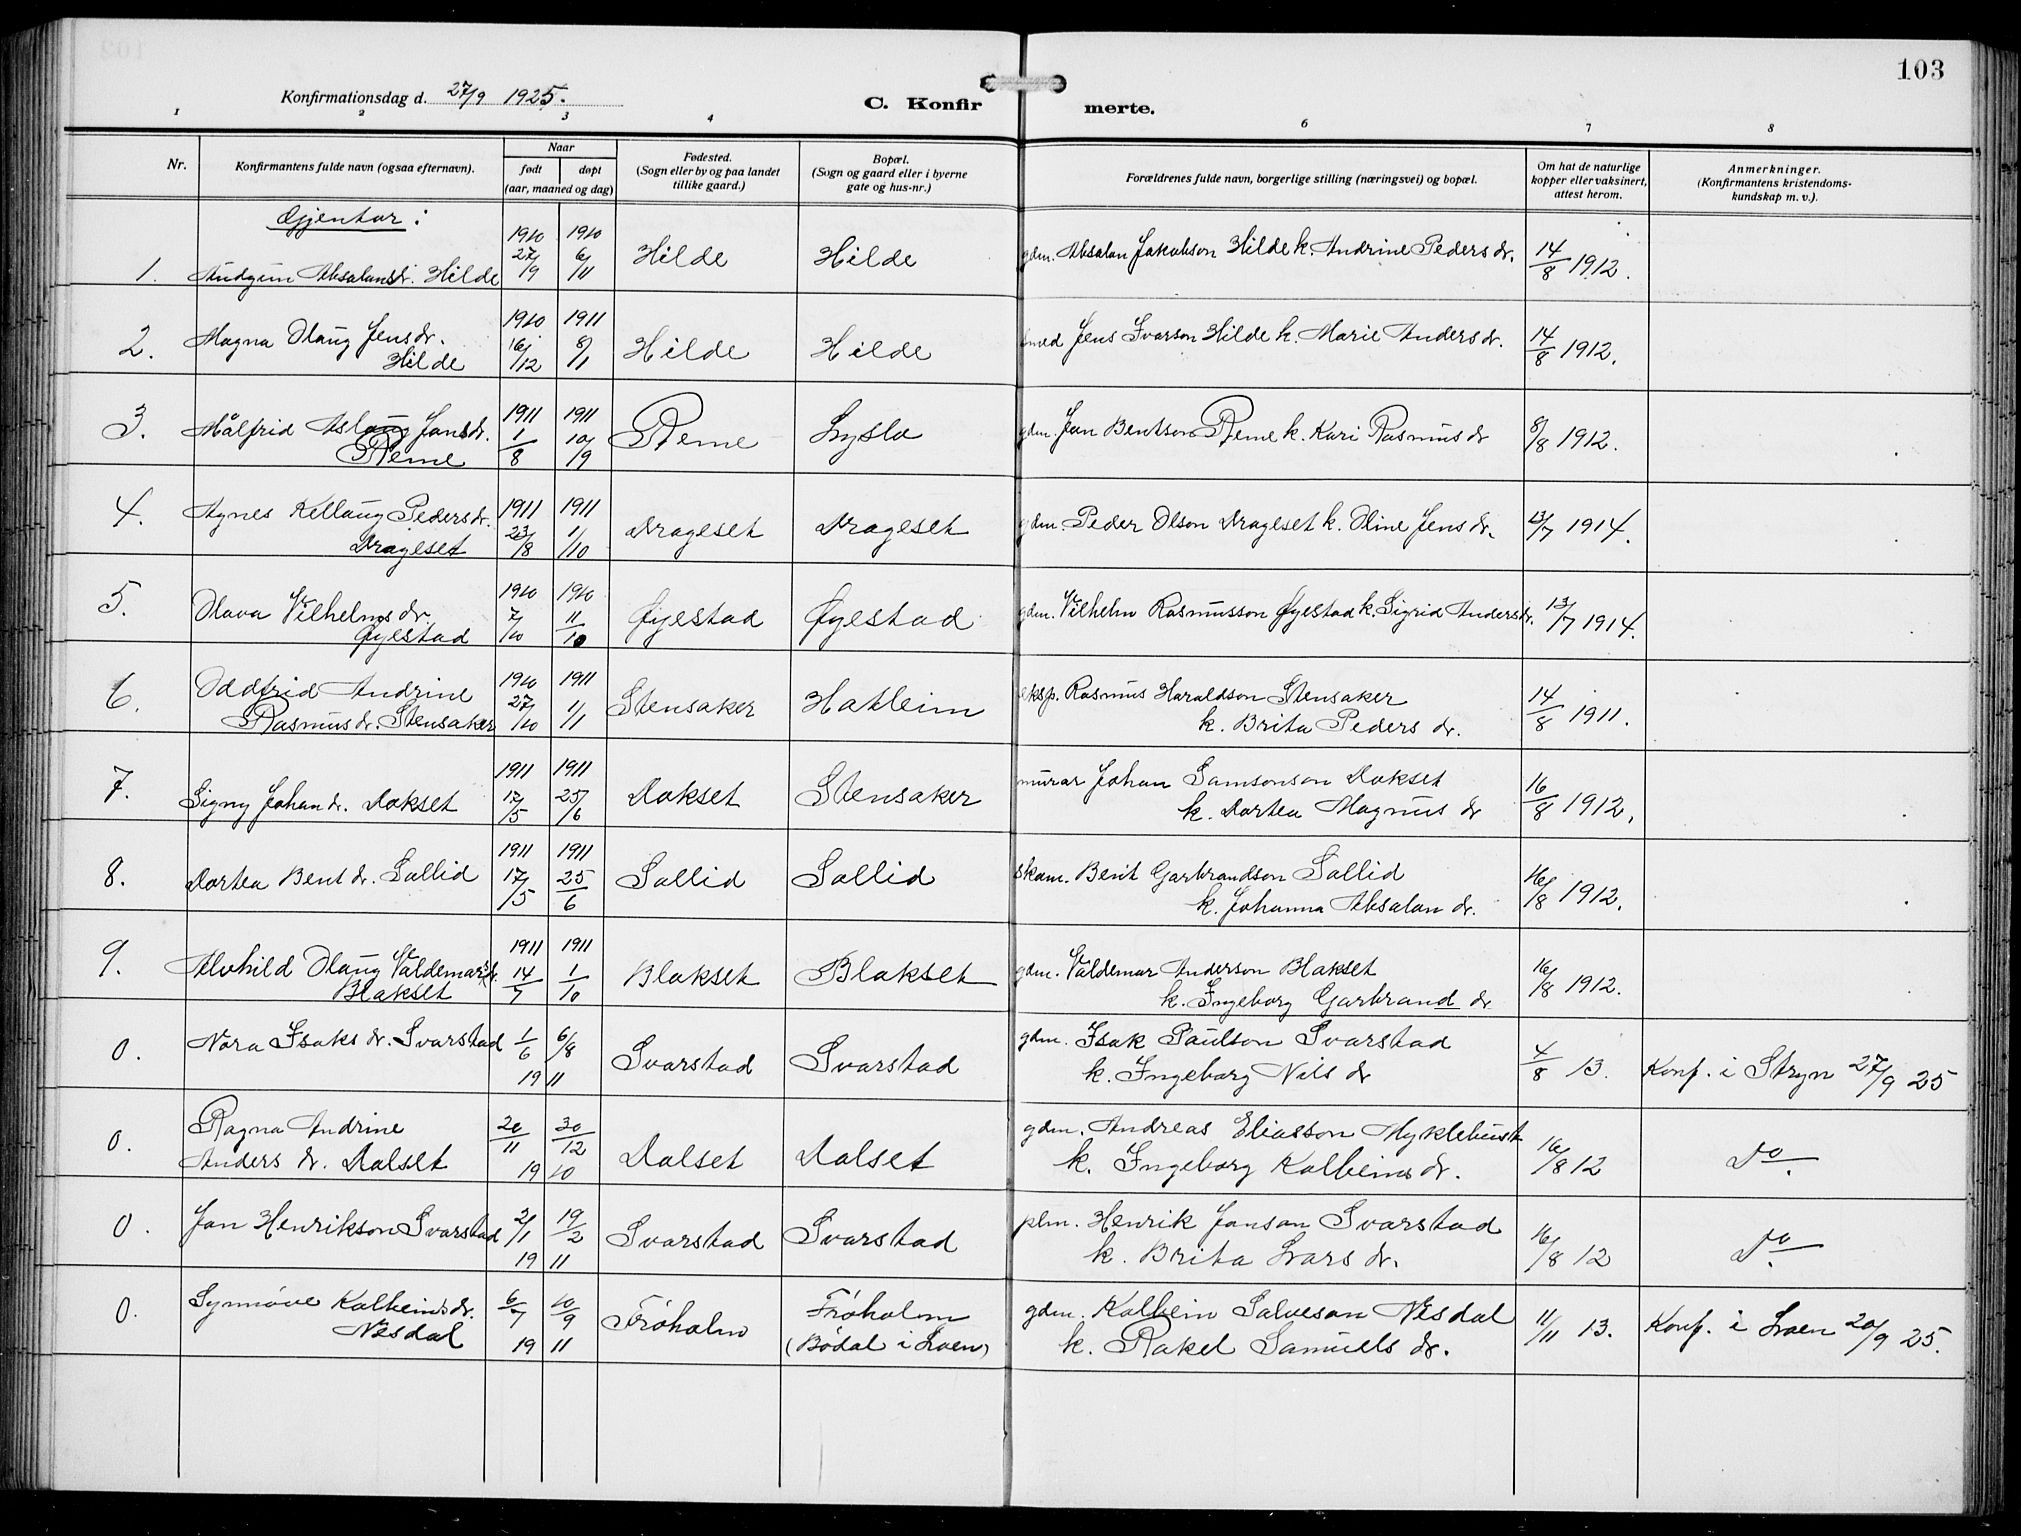 103
Konfirmationsdag d. 27/9 1925.
C. Konfirmerte.
1 2 3 4 6 7 8
Nr.
Konfirmantens fulde navn (ogsaa efternavn).
Naar
født døpt
(aar, maaned og dag)
Fødested.
(Sogn eller by og paa landet
tillike gaard.)
Bopæl.
(Sogn og gaard eller i byerne
gate og hus-nr.)
Forældrenes fulde navn, borgerlige stilling (næringsvei) og bopæl.
Om hat de naturlige
kopper eller vaksinert,
attest herom.
Anmerkninger.
(Konfirmantens kristendoms-
kundskap m. v.).
Gjentor:
1. Audgun Absalonsdr. Hilde 1910 27/9 1910 6/11 Hilde Hilde gdm. Absalon Jakobson Hilde k. Andrine Peders dr. 14/8 1912.
2. Magna Olaug Jensdr.
Hilde 1910 16/12 1911 8/1 Hilde Hilde smed Jens Ivarson Hilde k. Marie Anders dr. 14/8 1912.
3. Målfrid Aslaug Jonsdr.
Reme 1911 1/8 1911 10/9 Reme Lyslo gdm. Jon Bentson Reme k. Kari Rasmus dr 8/8 1912.
4. Agnes Kellaug Pedersdr.
Drageset 1911 23/8 1911 1/10 Drageset Drageset gdm. Peder Olson Drageset k. Oline Jens dr. 13/7 1914.
5. Olava Vilhelms dr.
Øyestad 1910 7/10 1910 11/10 Øyestad Øyestad gdm. Vilhelm Rasmusson Øyestad k. Sigrid Anders dr. 13/7 1914.
6. Oddfrid Andrine
Rasmus dr. Stensaker 1910 27/10 1911 1/1 Stensaker Hatleim eksp. Rasmus Haraldson Stensaker
k. Brita Peders dr. 14/8 1911.
7. Signy Johan dr. Dokset 1911 17/5 1911 25/6 Dokset Stensaker murar Johan Samsonson Dokset
k. Dortea Magnus dr 16/8 1912.
8. Dortea Bent dr. Sollid 1911 17/5 1911 25/6 Sollid Sollid skom. Bent Garbrandson Sollid
k. Johanna Absalon dr. 16/8 1912.
9. Alvhild Olaug Valdemarsdr.
Blakset 1911 14/7 1911 1/10 Blakset Blakset gdm. Valdemar Anderson Blakset
k. Ingeborg Garbrand dr 16/8 1912.
0. Nora Isaks dr. Svarstad 1/6 6/8 1911 Svarstad Svarstad gdm. Isak Paulson Svarstad
k. Ingeborg Nils dr 4/8 13. Konf. i Stryn 27/9 25
0. Ragna Andrine
Anders dr. Dalset 20/11 30/12 1910 Dalset Dalset gdm. Andreas Eliasson Myklebust
k. Ingeborg Kolbeins dr. 16/8 12 Do.
0. Jon Henrikson Svarstad 2/1 19/2 1911 Svarstad Svarstad plm. Henrik Jonson Svarstad
k. Brita Lars dr. 16/8 12 Do.
0. Synnøve Kolbeinsdr.
Nesdal 6/7 10/9 1911 Frøholm Frøholm
(Bødal i Loen) gdm. Kolbein Salveson Nesdal
k. Rakel Samuels dr. 11/11 13. Konf. i Loen 20/9 25.